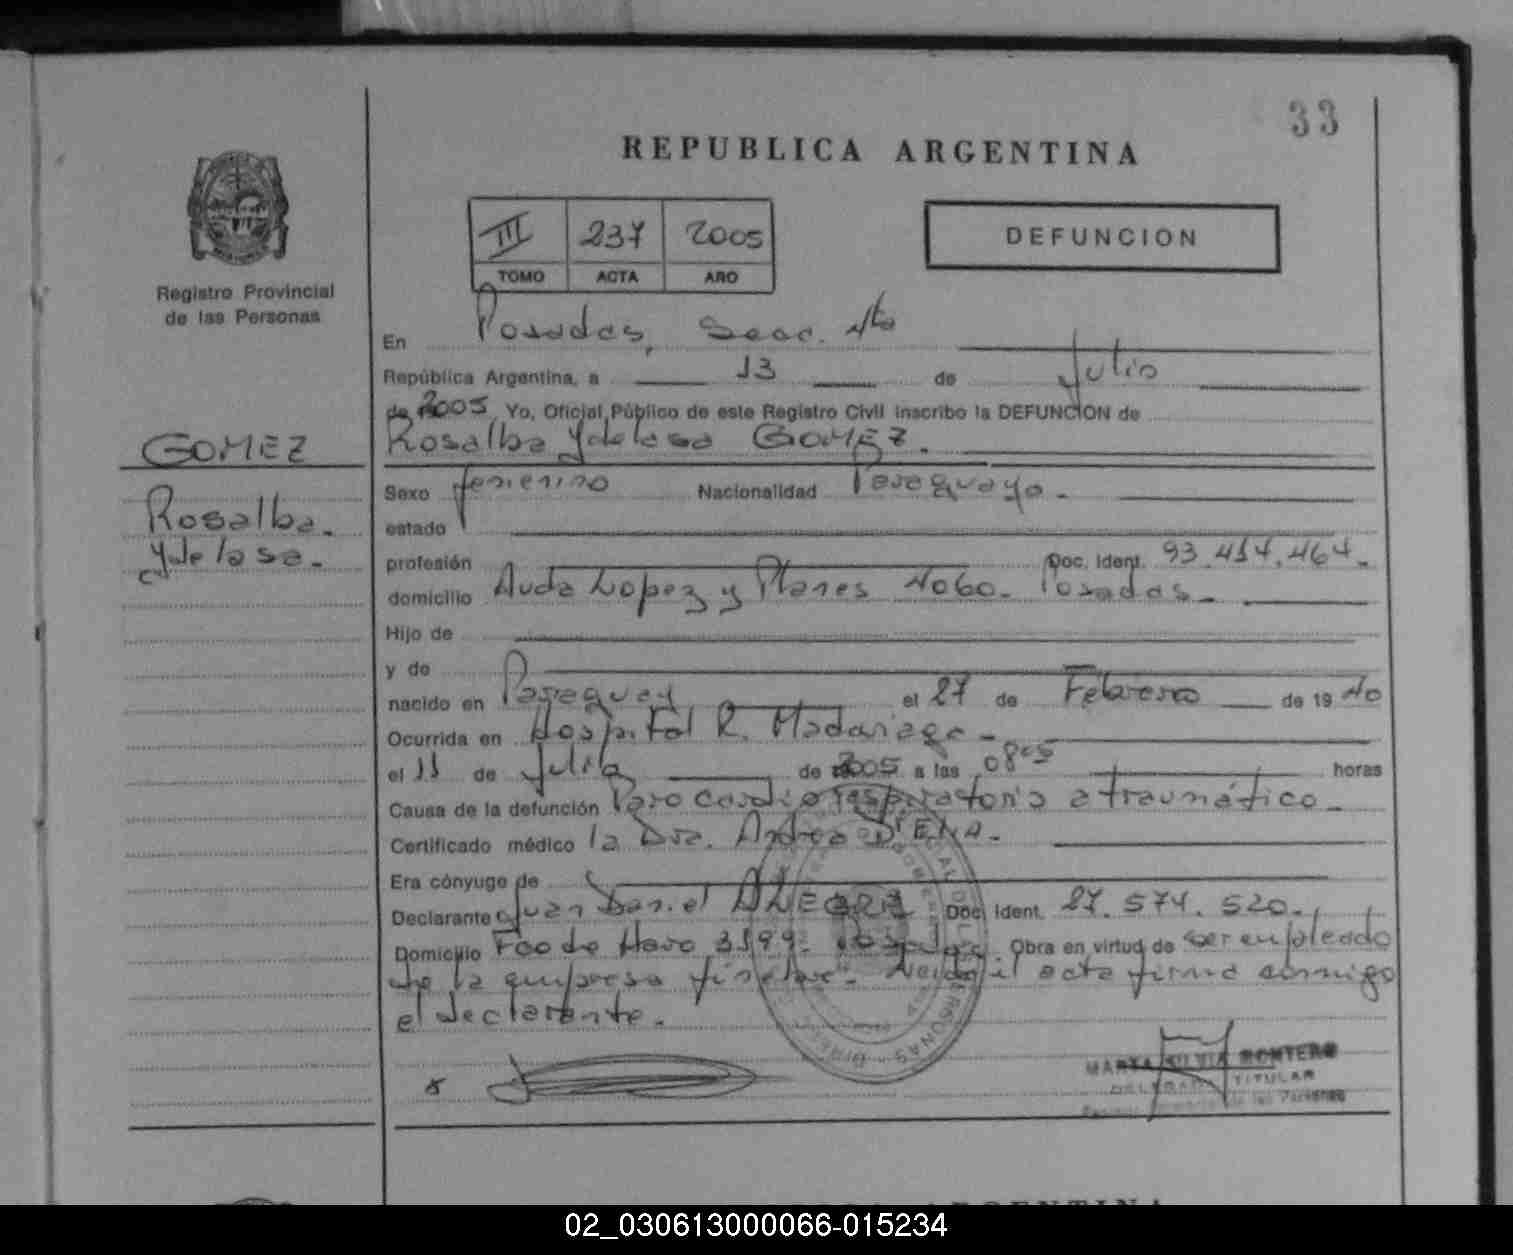 33
REPUBLICA ARGENTINA
III 237 2005
TOMO ACTA AÑO
DEFUNCION
Registro Provincial
de las Personas
En Posadas, Secc. 4ta
República Argentina, a 13 de Julio
de 2005 Yo, Oficial Público de este Registro Civil inscribo la DEFUNCION de
GOMEZ
Rosalba Ydelasa GOMEZ.
Sexo femenino Nacionalidad Paraguaya.
Rosalba.
Ydelasa.
estado
profesión Doc. Ident. 93.414.464.
domicilio Avda Lopez y Planes 4060. Posadas.
Hijo de
y de
nacido en Paraguay el 27 de Febrero de 19 40
Ocurrida en Hospital R. Madariaga.
el 11 de Julio de 2005 a las 08 05 horas
Causa de la defunción Paro cardiorespiratorio atraumático.
Certificado médico la Dra. Andrea D'ELIA.
Era cónyuge de
Declarante Juan Daniel ALEGRE Doc. Ident. 27.574.520.
Domicilio Fco de Haro 3599. Posadas. Obra en virtud de ser empleado
de la empresa Leida el acta firma conmigo
el declarante.
MARTA SILVIA MONTERO
DELEGADA TITULAR
de las Personas
ARGENTINA
02_030613000066-015234